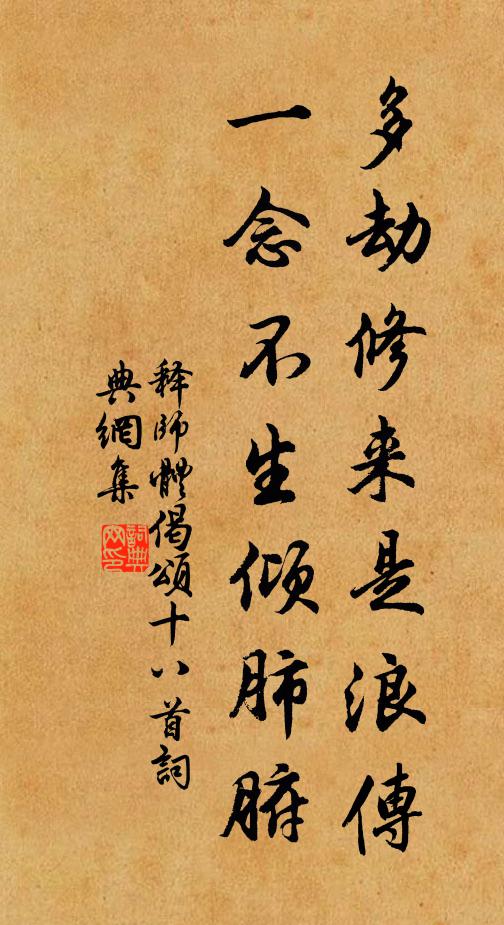 多劫修来是浪傳
一念不生傾肺腑
释師體偈頌十八首詞
典網集
詞典
网印